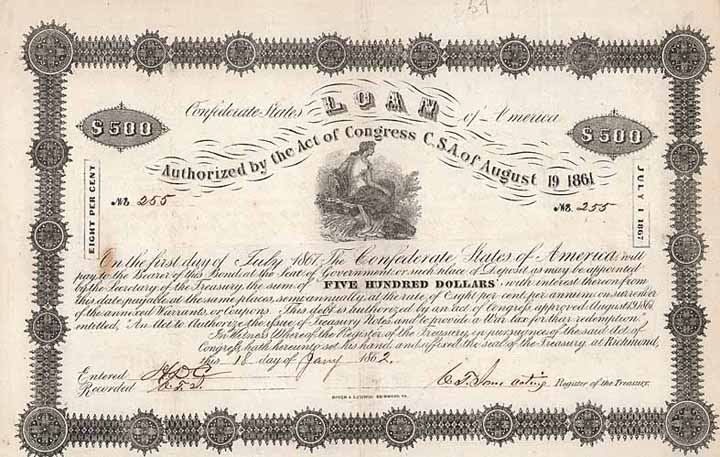 Confederate States LOAN of America
$500 $500
Authorized by the Act of Congress C.S.A. of August 19 1861
EIGHT PER CENT
JULY 1 1867
No. 255 No. 255
On the first day of July 1867, The Confederate States of America will
pay to the Bearer of this Bond, at the Seat of Government or such place of Deposit as may be appointed
by the Secretary of the Treasury, the sum of FIVE HUNDRED DOLLARS with interest thereon from
this date payable at the same places, semi annually, at the rate of Eight per cent, per annum on surrender
of the annexed Warrants, or Coupons. This debt is authorized by an act of Congress, approved August 19, 1861,
entitled, An Act to Authorize the issue of Treasury Notes and to provide a War tax for their redemption.
In Witness Whereof the Register of the Treasury, in pursuance of the said Act of
Congress, hath hereunto set his hand, and affixed the seal of the Treasury, at Richmond,
this 18 day of Jany 1862.
Entered
Recorded
acting Register of the Treasury.